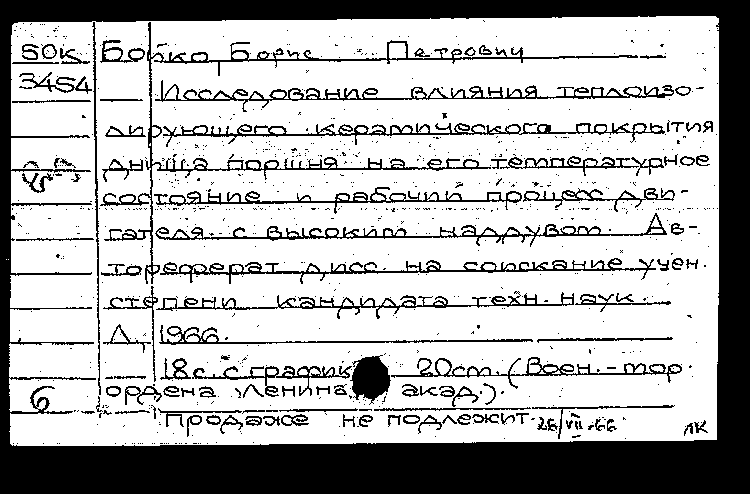 50К Бойко Борис Петрович
3454 Исследование влияния теплоизо-
лирующего керамического покрытия
днища поршня на его температурное
состояние и рабочий процесс дви-
гателя с высоким наддувом. Ав-
тореферат дисс. на соискание учен.
степени кандидата техн. наук.
Л., 1966.
18с. с график 20см. (Воен.-мор.
6 ордена Ленина акад.).
Продаже не подлежит. 26/VII-66 ЛК